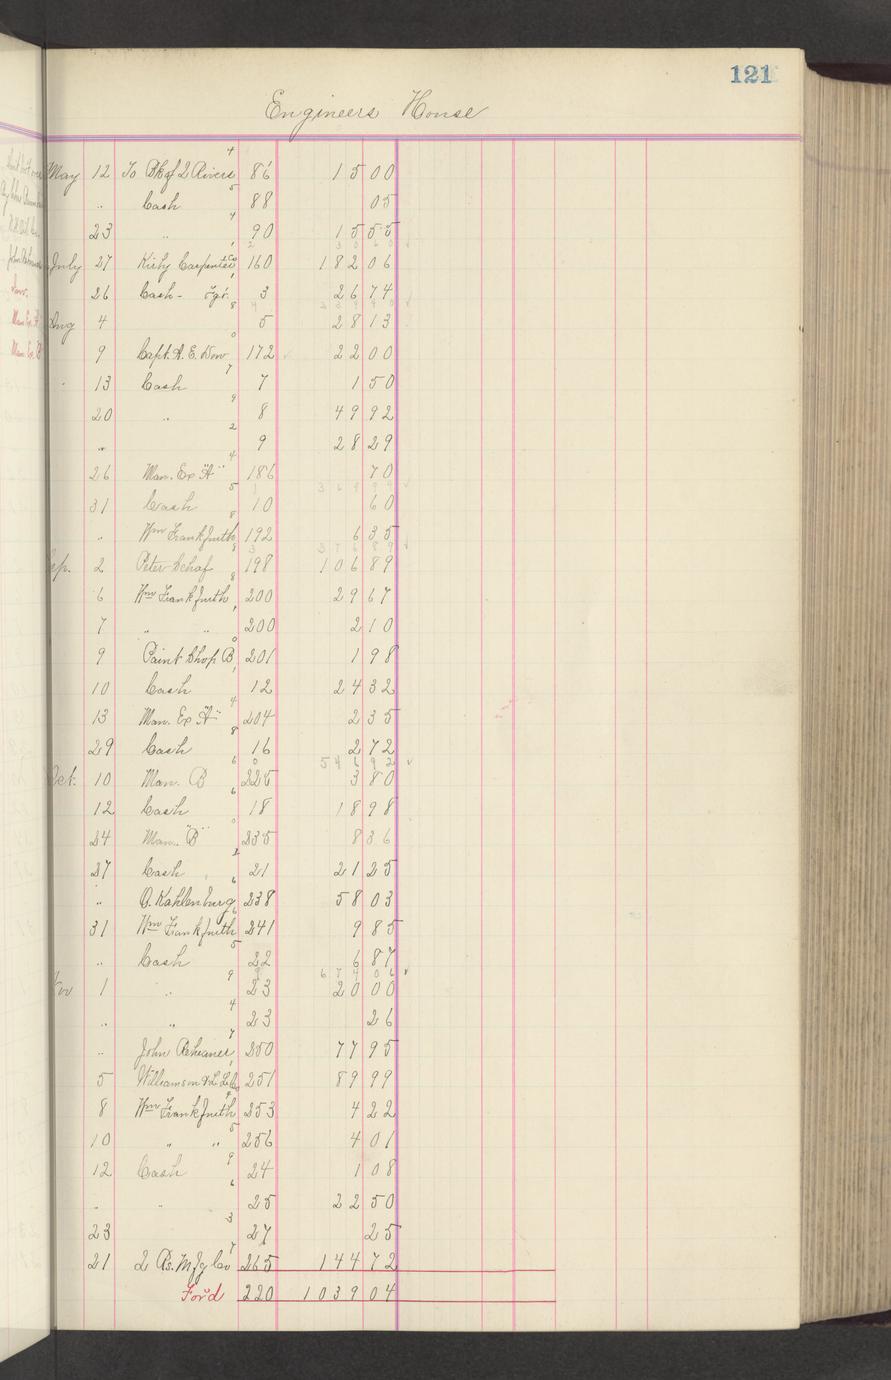 121
Engineers House
May 12 To Bk of 2 Rivers 4 86 15 00
" Cash 5 88 05
23 " 4 90 15 55
2 30 60
July 27 Kirby Carpenter Co 1 160 182 06
26 Cash - Fgt. 1 3 26 74
Aug 4 8 5 28 13
9 Capt. A. E. Dow 0 172 22 00
" 13 Cash 7 7 1 50
20 " 9 8 49 92
" 2 9 28 29
26 Man. Ex "A" 4 186 70
364 99
31 Cash 5 10 60
" Wm Frank Smith 8 192 6 35
3 376 89
Sep. 2 Peter Schaf 8 198 106 89
6 Wm Frank Smith 8 200 29 67
7 " " 1 200 2 10
9 Paint Shop B 0 201 1 98
10 Cash 1 12 24 32
13 Man. Ex "A" 4 204 2 35
29 Cash 8 16 2 72
0 546 92
Oct. 10 Man. B 6 225 3 80
12 Cash 6 18 18 98
24 Man. "B" 0 235 8 36
27 Cash 21 21 25
" O. Kahlenburg 6 238 58 03
31 Wm Frank Smith 6 241 9 85
" Cash 5 22 6 87
674 06
Nov 1 " 9 23 20 00
" " 4 23 26
" John 7 250 77 95
5 Williamson & L 1 251 89 99
8 Wm Frank Smith 253 4 22
10 " " 5 256 4 01
12 Cash 9 24 1 08
" " 6 25 22 50
23 3 27 25
21 2 Rs. Mfg Co 7 265 144 72
For'd 220 1039 04